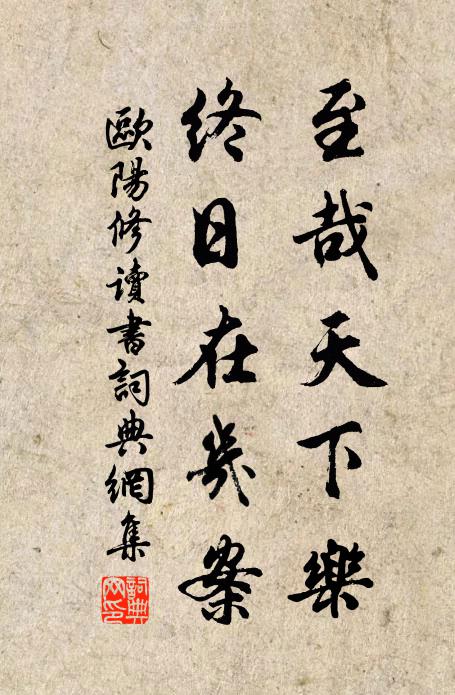 至哉天下樂
終日在幾案
歐陽修讀書詞典網集
詞典網印